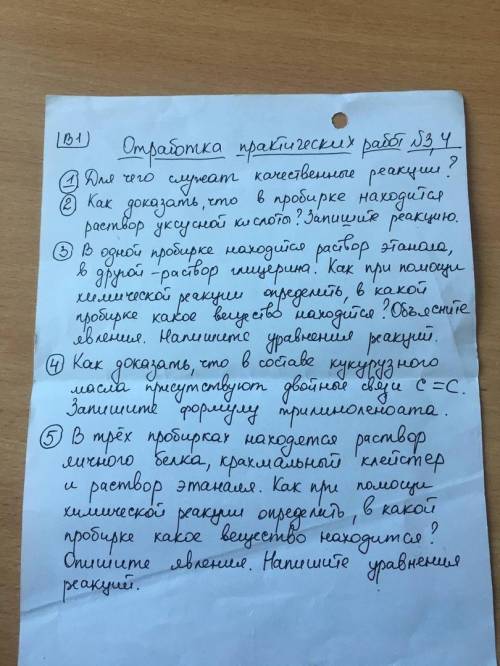 В1
Отработка практических работ №3,4
① Для чего служат качественные реакции?
② Как доказать, что в пробирке находится
раствор уксусной кислоты? Запишите реакцию.
③ В одной пробирке находится раствор этанола,
в другой – раствор глицерина. Как при помощи
химической реакции определить, в какой
пробирке какое вещество находится? Объясните
явления. Напишите уравнения реакций.
④ Как доказать, что в составе кукурузного
масла присутствуют двойные связи С=С.
Запишите формулу трилинолеоата.
⑤ В трёх пробирках находятся раствор
яичного белка, крахмальный клейстер
и раствор этаналя. Как при помощи
химической реакции определить, в какой
пробирке какое вещество находится?
Опишите явления. Напишите уравнения
реакций.